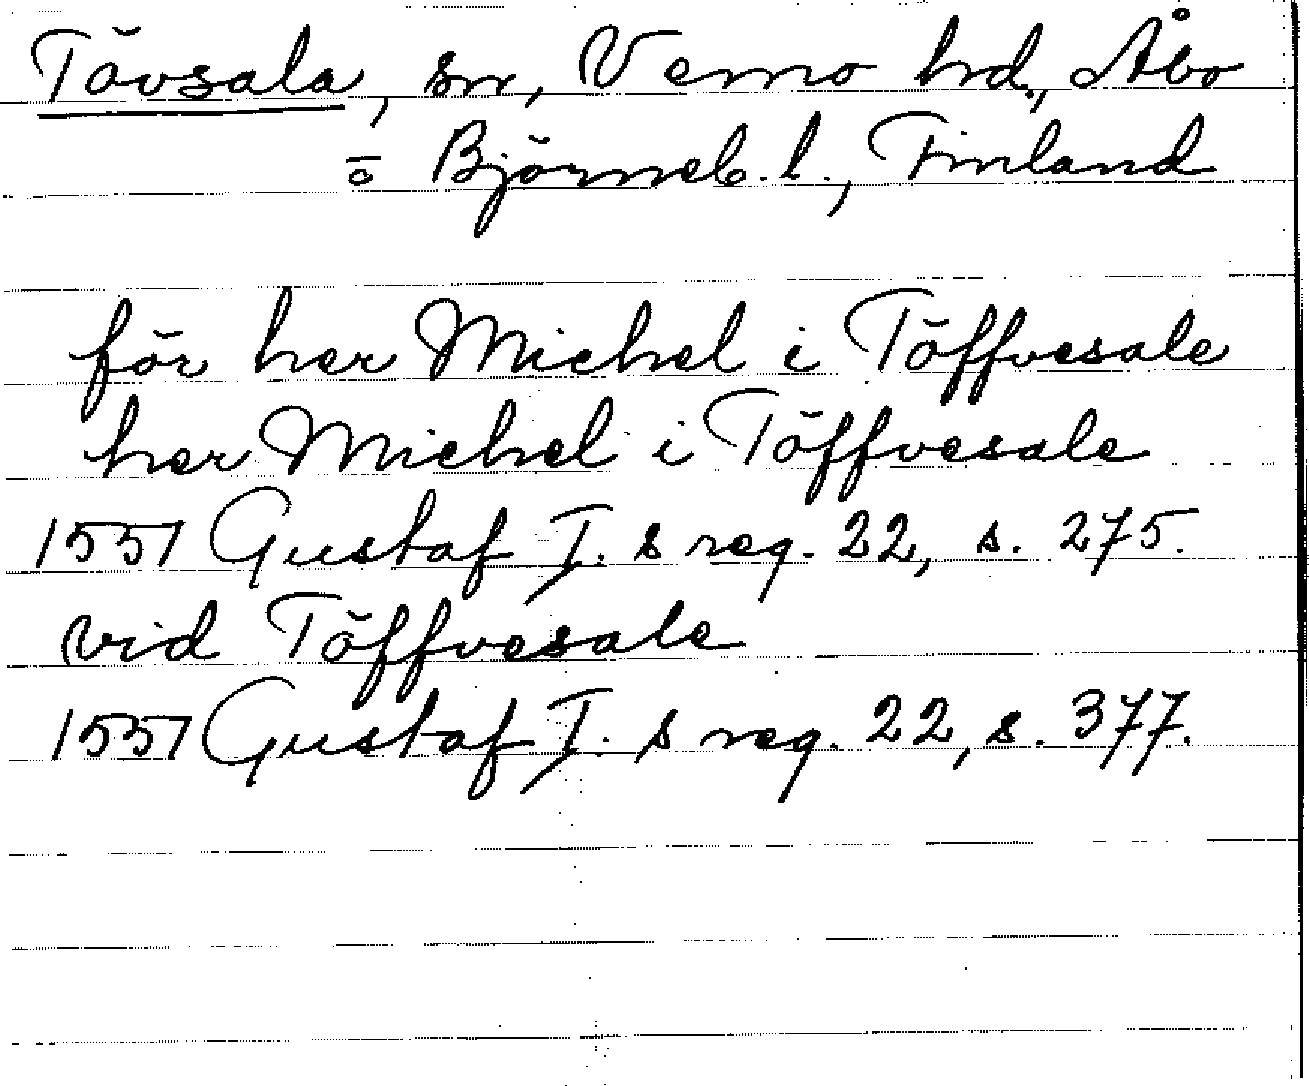 Tövsala, sn, Vemo hd., Åbo
o Björneb. l., Finland
för her Michel i Töffvesale
her Michel i Töffvesale
1551 Gustaf I. s reg. 22, s. 275.
vid Töffvesale
1551 Gustaf I. s reg. 22, s. 377.